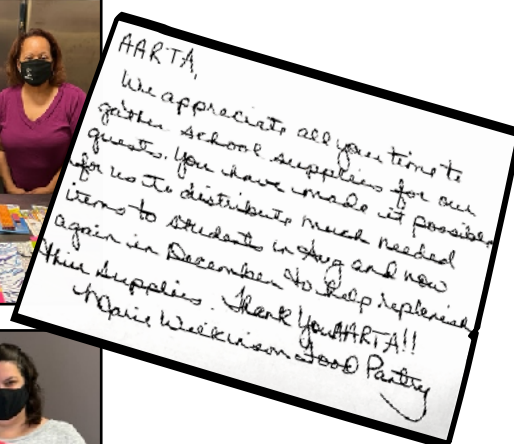 AARTA,
We appreciate all your time to
gather school supplies for our
guests. You have made it possible
for us to distribute much needed
items to students in Aug and now
again in December to help replenish
their supplies. Thank You AARTA!!
Marie Wilkinson Food Pantry